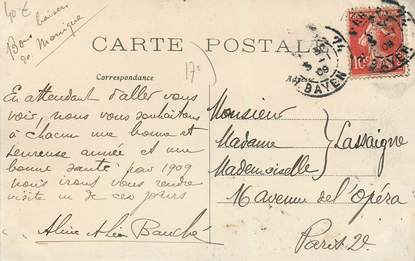 60 €
Bons baisers
de Monique
CARTE POSTALE
Correspondance
Adresse
17
En attendant d'aller vous
voir, nous vous souhaitons
à chacun une bonne et
heureuse année et une
bonne santé pour 1909
nous irons vous rendre
visite un de ces jours
Aline
Monsieur
Madame
Lassaigne
Mademoiselle
16 avenue de l'Opéra
Paris
74
09
BAYEN